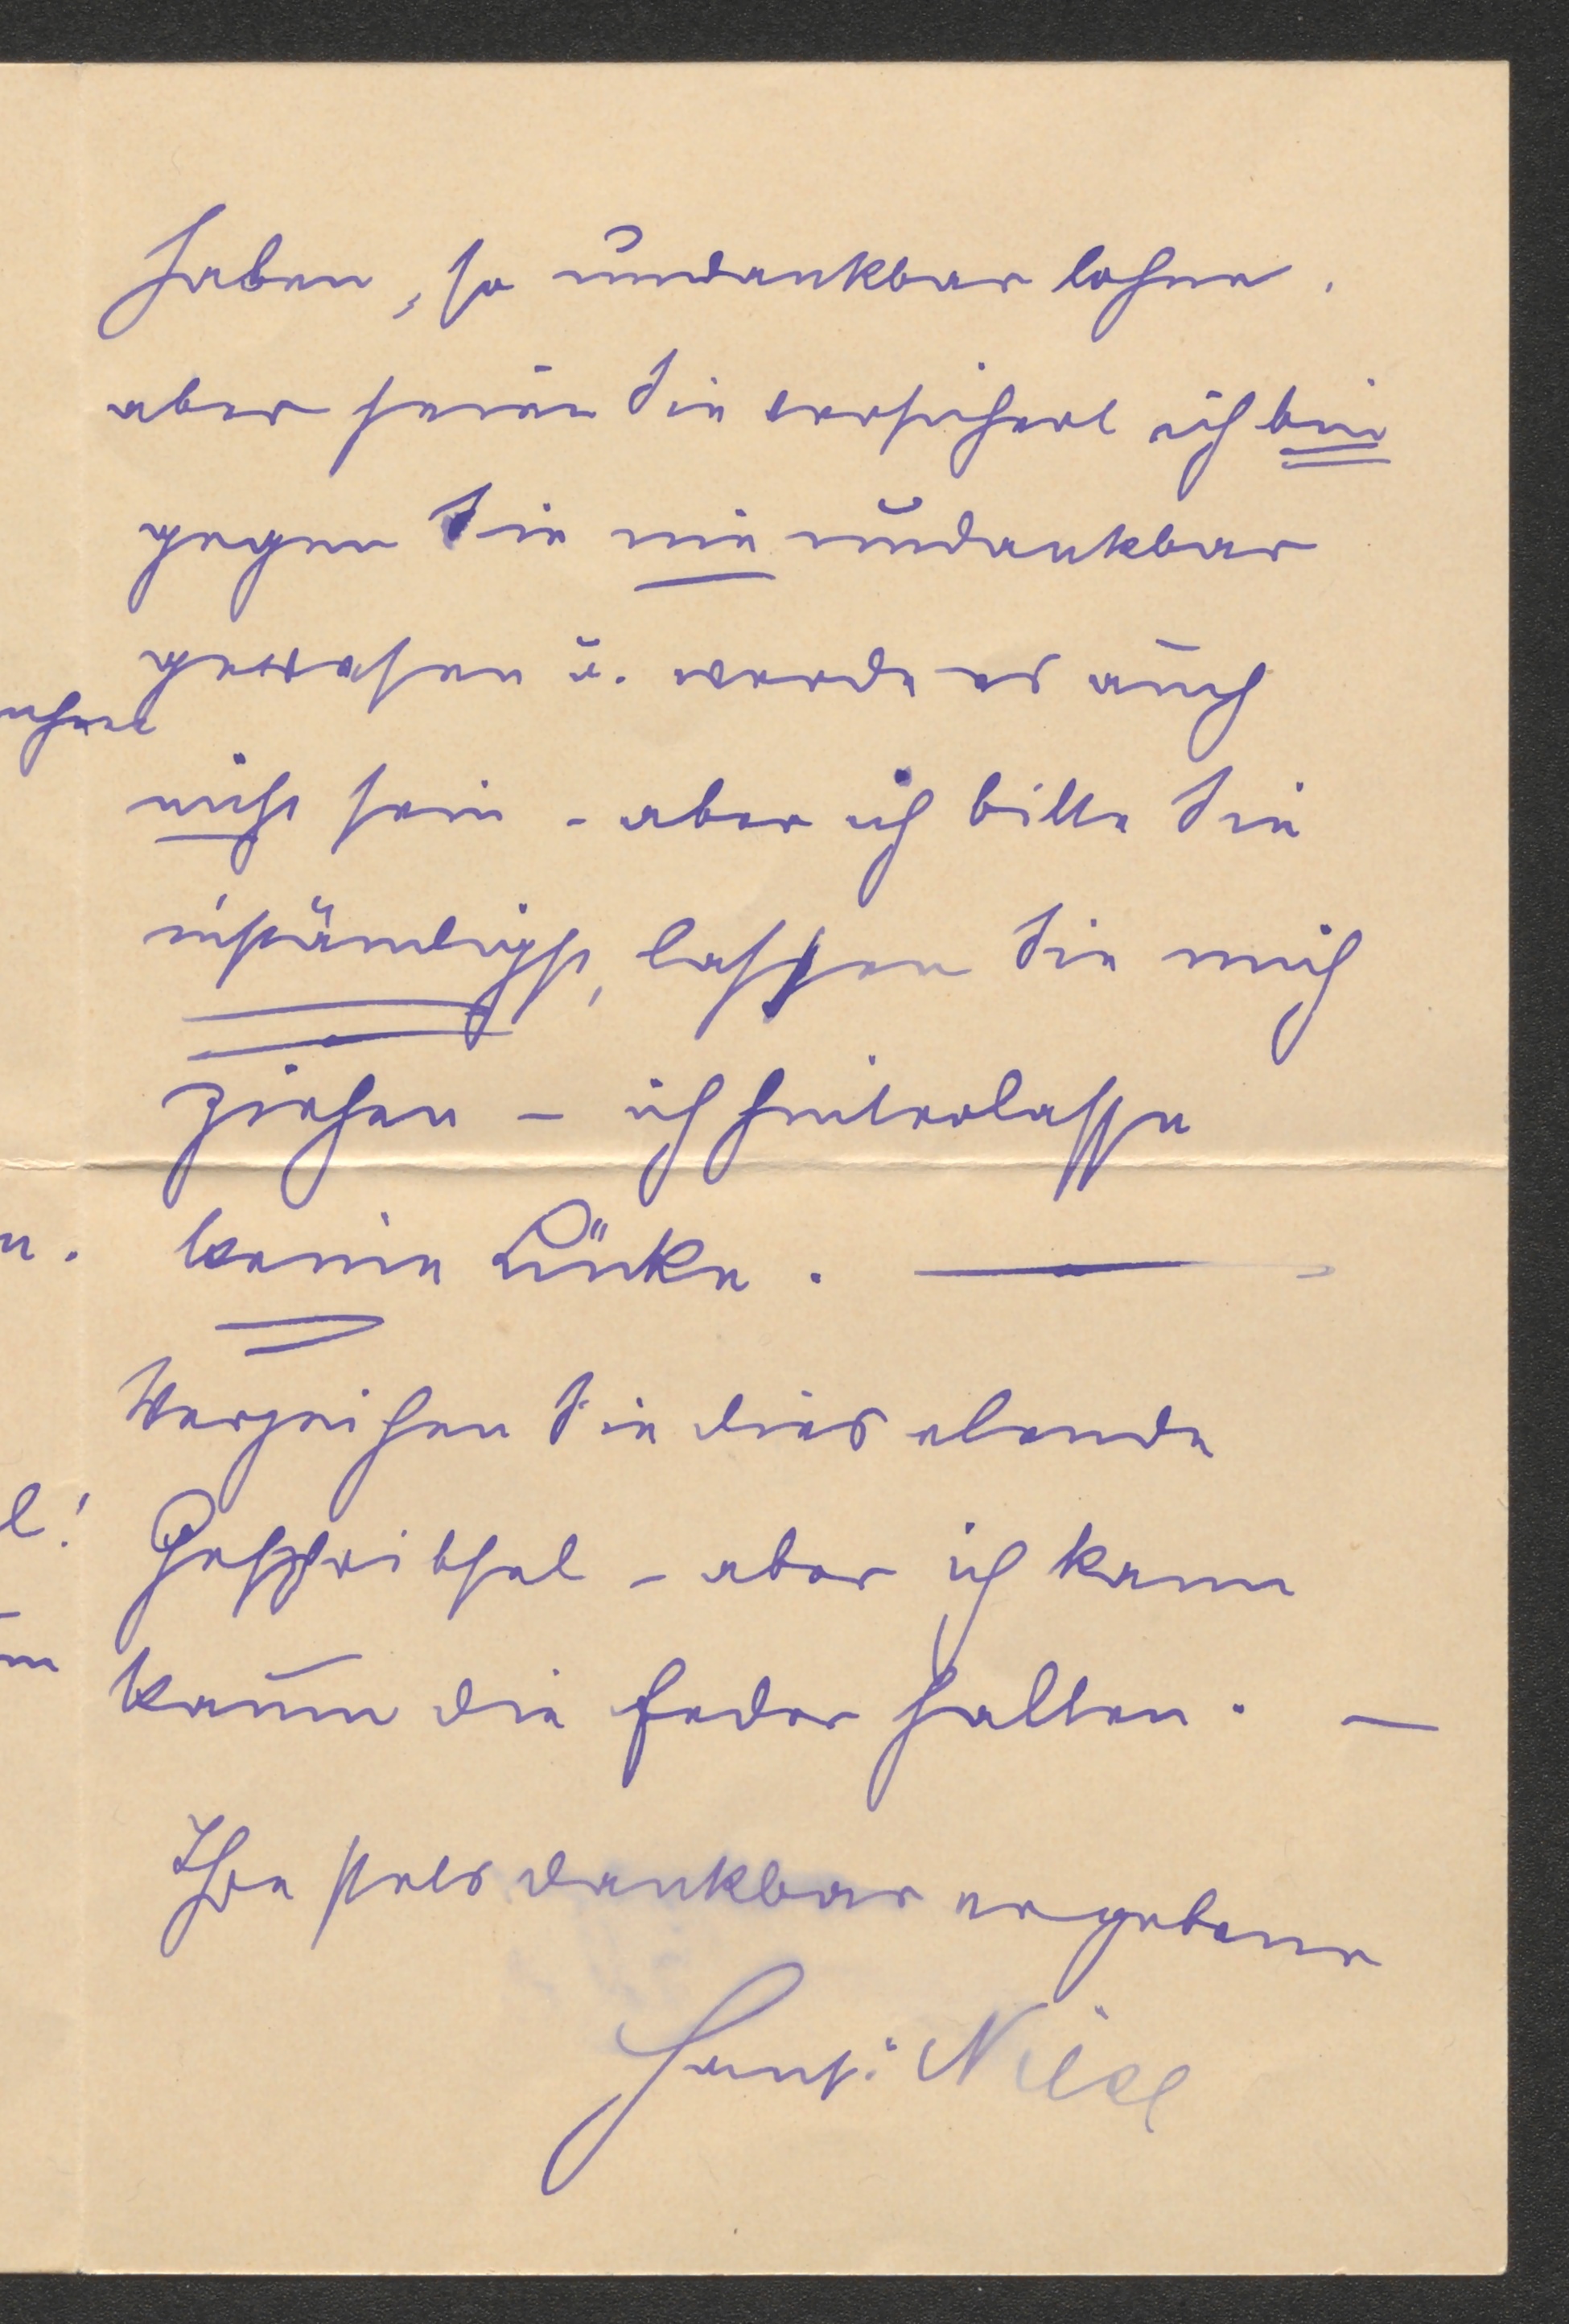 haben, so undankbar lohne.
aber seien Sie versichert ich bin
gegen Sie nie undankbar
gewesen u. werde es auch
nicht sein - aber ich bitte Sie
inständigst, lassen Sie mich
ziehen - ich hinterlasse
keine Lücke. —
Verzeihen Sie dies elende
Geschreibsel - aber ich kann
kaum die Feder halten. —
Ihre stets dankbar ergebene
Hansi Niese